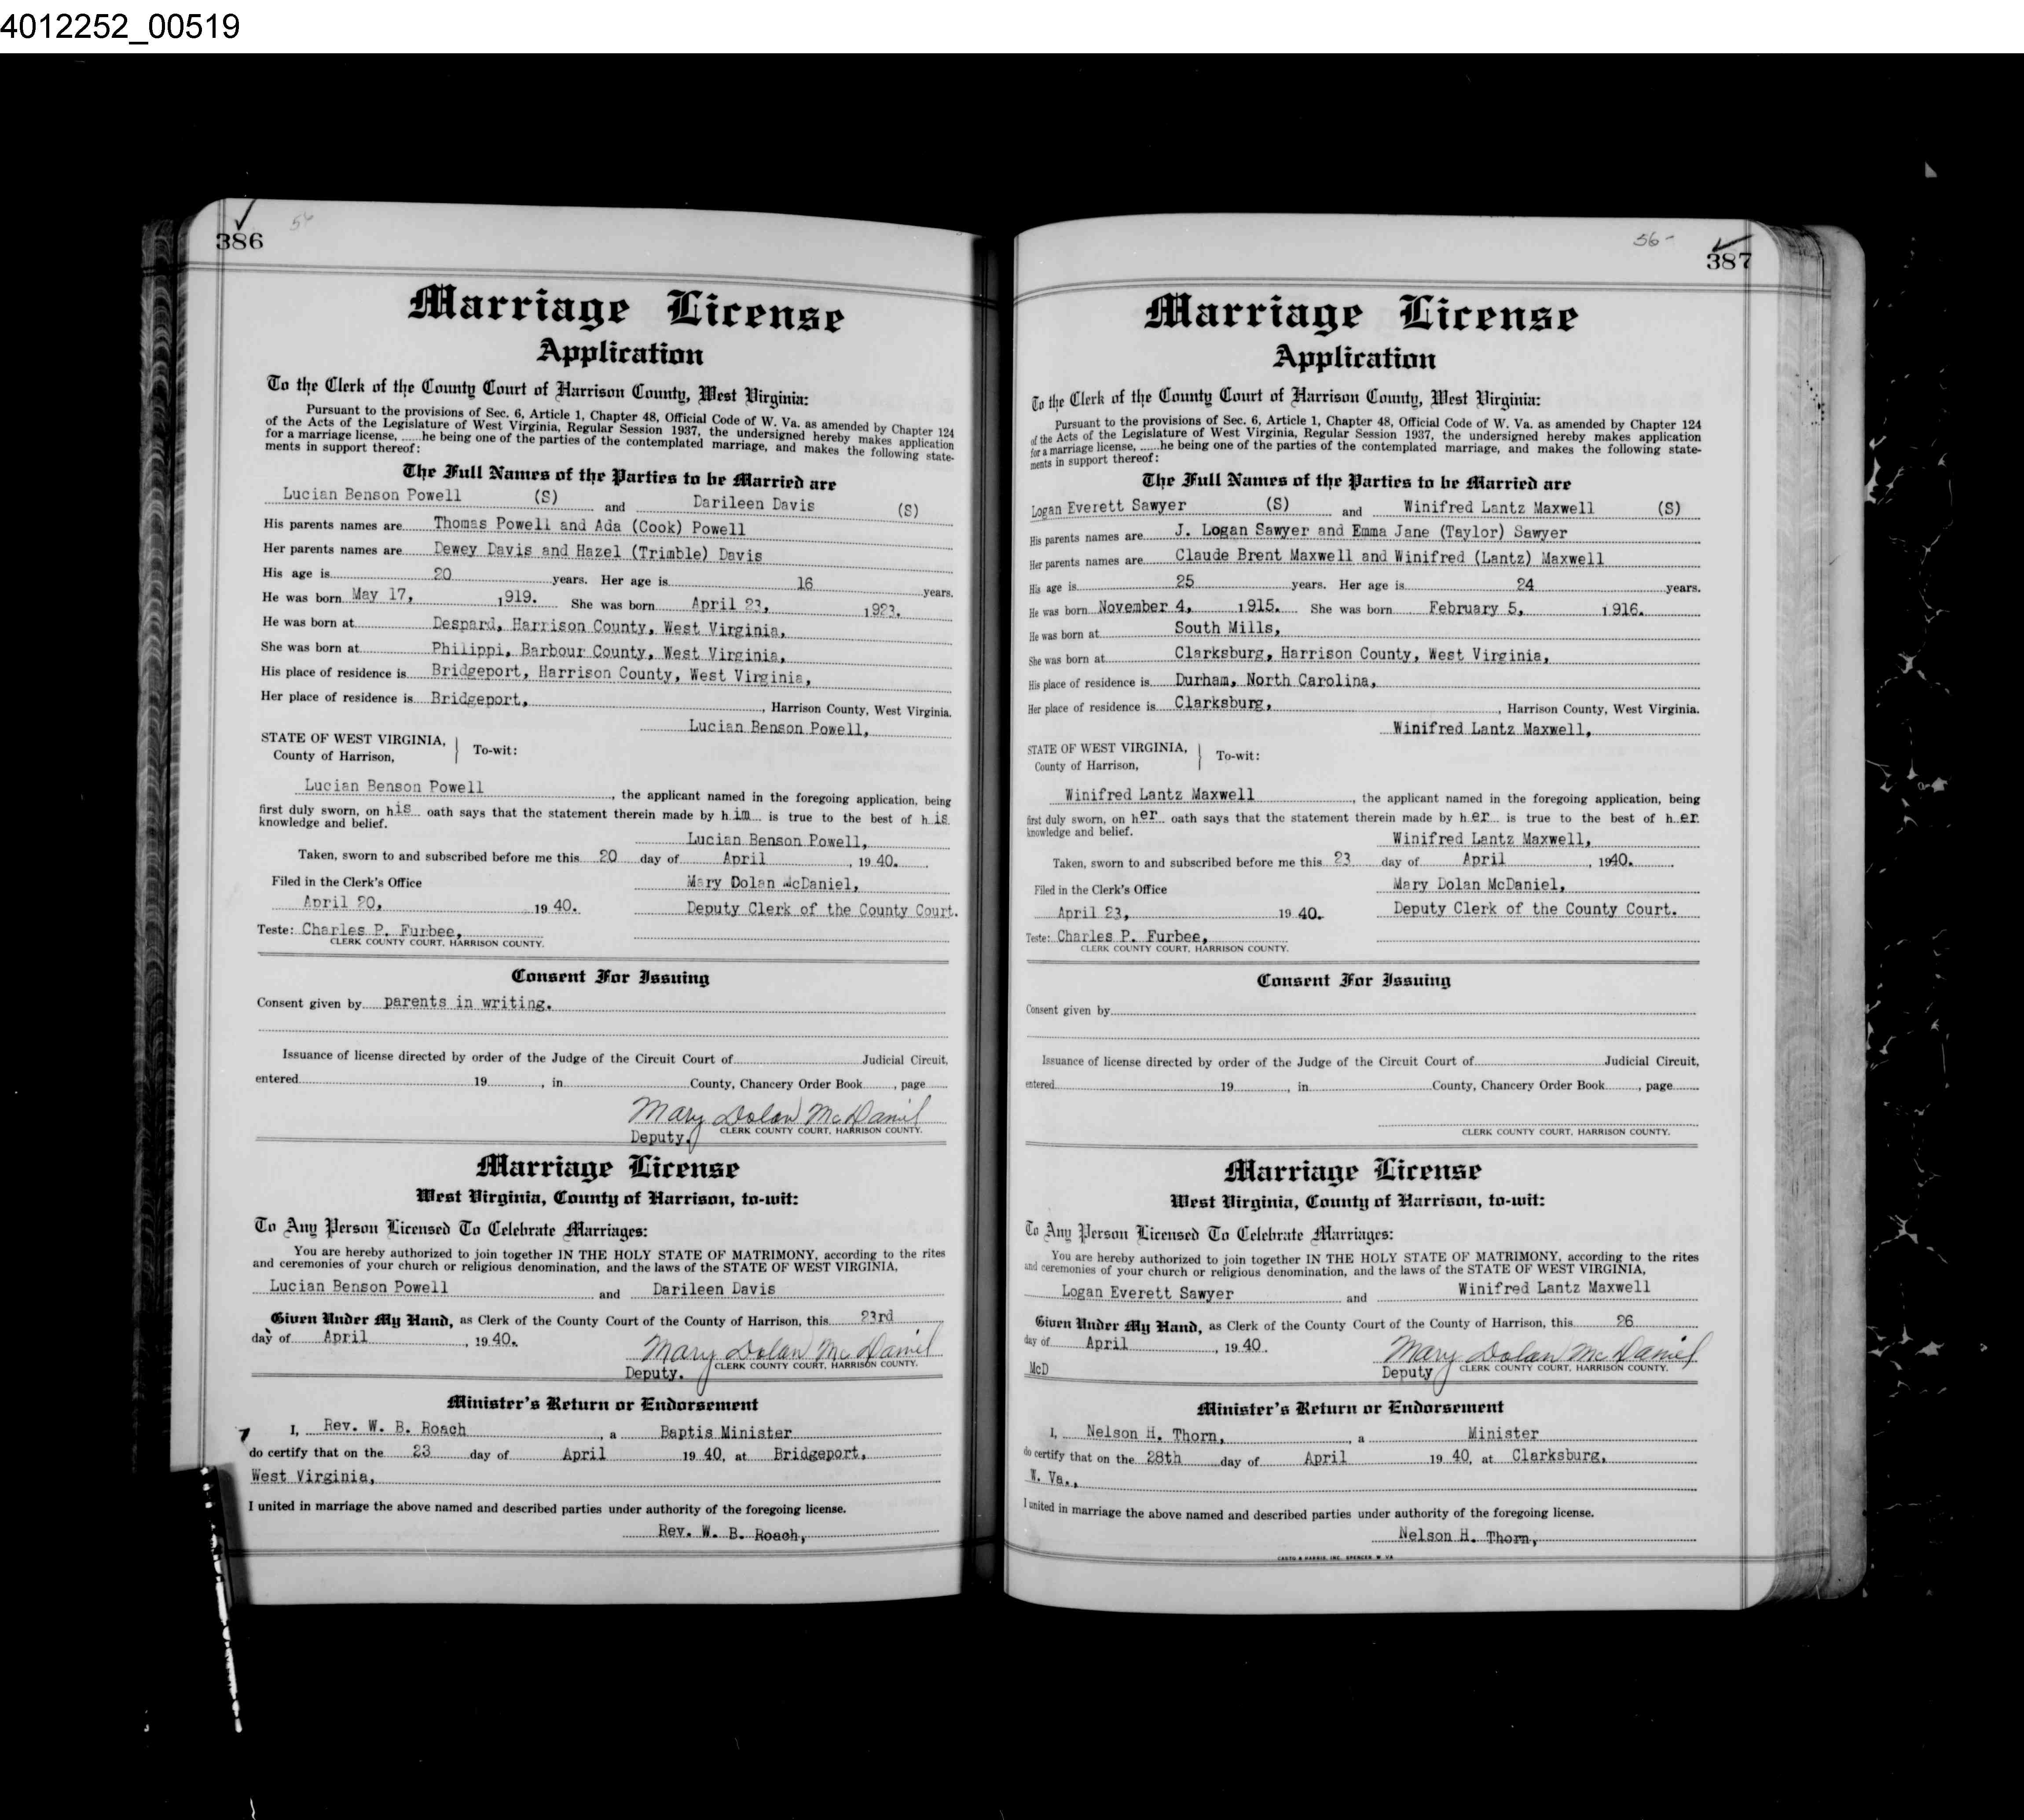 4012252_00519
386
56
Marriage License
Application
To the Clerk of the County Court of Harrison County, West Virginia:
Pursuant to the provisions of Sec. 6, Article 1, Chapter 48, Official Code of W. Va. as amended by Chapter 124
of the Acts of the Legislature of West Virginia, Regular Session 1937, the undersigned hereby makes application
for a marriage license, ......he being one of the parties of the contemplated marriage, and makes the following state-
ments in support thereof:
The Full Names of the Parties to be Married are
Lucian Benson Powell (S) and Darileen Davis (S)
His parents names are Thomas Powell and Ada (Cook) Powell
Her parents names are Dewey Davis and Hazel (Trimble) Davis
His age is 20 years. Her age is 16 years.
He was born May 17, 1919. She was born April 23, 1923.
He was born at Despard, Harrison County, West Virginia,
She was born at Philippi, Barbour County, West Virginia,
His place of residence is Bridgeport, Harrison County, West Virginia,
Her place of residence is Bridgeport, , Harrison County, West Virginia.
Lucian Benson Powell,
STATE OF WEST VIRGINIA,
County of Harrison, To-wit:
Lucian Benson Powell , the applicant named in the foregoing application, being
first duly sworn, on his oath says that the statement therein made by him is true to the best of his
knowledge and belief.
Lucian Benson Powell,
Taken, sworn to and subscribed before me this 20 day of April , 19 40.
Filed in the Clerk's Office Mary Dolan McDaniel,
April 20, 19 40. Deputy Clerk of the County Court.
Teste: Charles P. Furbee,
CLERK COUNTY COURT, HARRISON COUNTY.
Consent For Issuing
Consent given by parents in writing.
Issuance of license directed by order of the Judge of the Circuit Court of Judicial Circuit,
entered 19 , in County, Chancery Order Book , page
Mary Dolan McDaniel
Deputy. CLERK COUNTY COURT, HARRISON COUNTY.
Marriage License
West Virginia, County of Harrison, to-wit:
To Any Person Licensed To Celebrate Marriages:
You are hereby authorized to join together IN THE HOLY STATE OF MATRIMONY, according to the rites
and ceremonies of your church or religious denomination, and the laws of the STATE OF WEST VIRGINIA,
Lucian Benson Powell and Darileen Davis
Given Under My Hand, as Clerk of the County Court of the County of Harrison, this 23rd
day of April , 19 40.
Mary Dolan McDaniel
Deputy. CLERK COUNTY COURT, HARRISON COUNTY.
Minister's Return or Endorsement
I, Rev. W. B. Roach , a Baptis Minister
do certify that on the 23 day of April 19 40, at Bridgeport,
West Virginia,
I united in marriage the above named and described parties under authority of the foregoing license.
Rev. W. B. Roach,
56-
387
Marriage License
Application
To the Clerk of the County Court of Harrison County, West Virginia:
Pursuant to the provisions of Sec. 6, Article 1, Chapter 48, Official Code of W. Va. as amended by Chapter 124
of the Acts of the Legislature of West Virginia, Regular Session 1937, the undersigned hereby makes application
for a marriage license, ......he being one of the parties of the contemplated marriage, and makes the following state-
ments in support thereof:
The Full Names of the Parties to be Married are
Logan Everett Sawyer (S) and Winifred Lantz Maxwell (S)
His parents names are J. Logan Sawyer and Emma Jane (Taylor) Sawyer
Her parents names are Claude Brent Maxwell and Winifred (Lantz) Maxwell
His age is 25 years. Her age is 24 years.
He was born November 4, 1915. She was born February 5, 1916.
He was born at South Mills,
She was born at Clarksburg, Harrison County, West Virginia,
His place of residence is Durham, North Carolina,
Her place of residence is Clarksburg, , Harrison County, West Virginia.
Winifred Lantz Maxwell,
STATE OF WEST VIRGINIA,
County of Harrison, To-wit:
Winifred Lantz Maxwell , the applicant named in the foregoing application, being
first duly sworn, on her oath says that the statement therein made by her is true to the best of her
knowledge and belief.
Winifred Lantz Maxwell,
Taken, sworn to and subscribed before me this 23 day of April , 1940.
Filed in the Clerk's Office Mary Dolan McDaniel,
April 23, 19 40. Deputy Clerk of the County Court.
Teste: Charles P. Furbee,
CLERK COUNTY COURT, HARRISON COUNTY.
Consent For Issuing
Consent given by
Issuance of license directed by order of the Judge of the Circuit Court of Judicial Circuit,
entered 19 , in County, Chancery Order Book , page
CLERK COUNTY COURT, HARRISON COUNTY.
Marriage License
West Virginia, County of Harrison, to-wit:
To Any Person Licensed To Celebrate Marriages:
You are hereby authorized to join together IN THE HOLY STATE OF MATRIMONY, according to the rites
and ceremonies of your church or religious denomination, and the laws of the STATE OF WEST VIRGINIA,
Logan Everett Sawyer and Winifred Lantz Maxwell
Given Under My Hand, as Clerk of the County Court of the County of Harrison, this 26
day of April , 19 40.
Mary Dolan McDaniel
McD Deputy CLERK COUNTY COURT, HARRISON COUNTY.
Minister's Return or Endorsement
I, Nelson H. Thorn, , a Minister
do certify that on the 28th day of April 19 40, at Clarksburg,
W. Va.,
I united in marriage the above named and described parties under authority of the foregoing license.
Nelson H. Thorn,
CASTO & HARRIS, INC. SPENCER, W. VA.